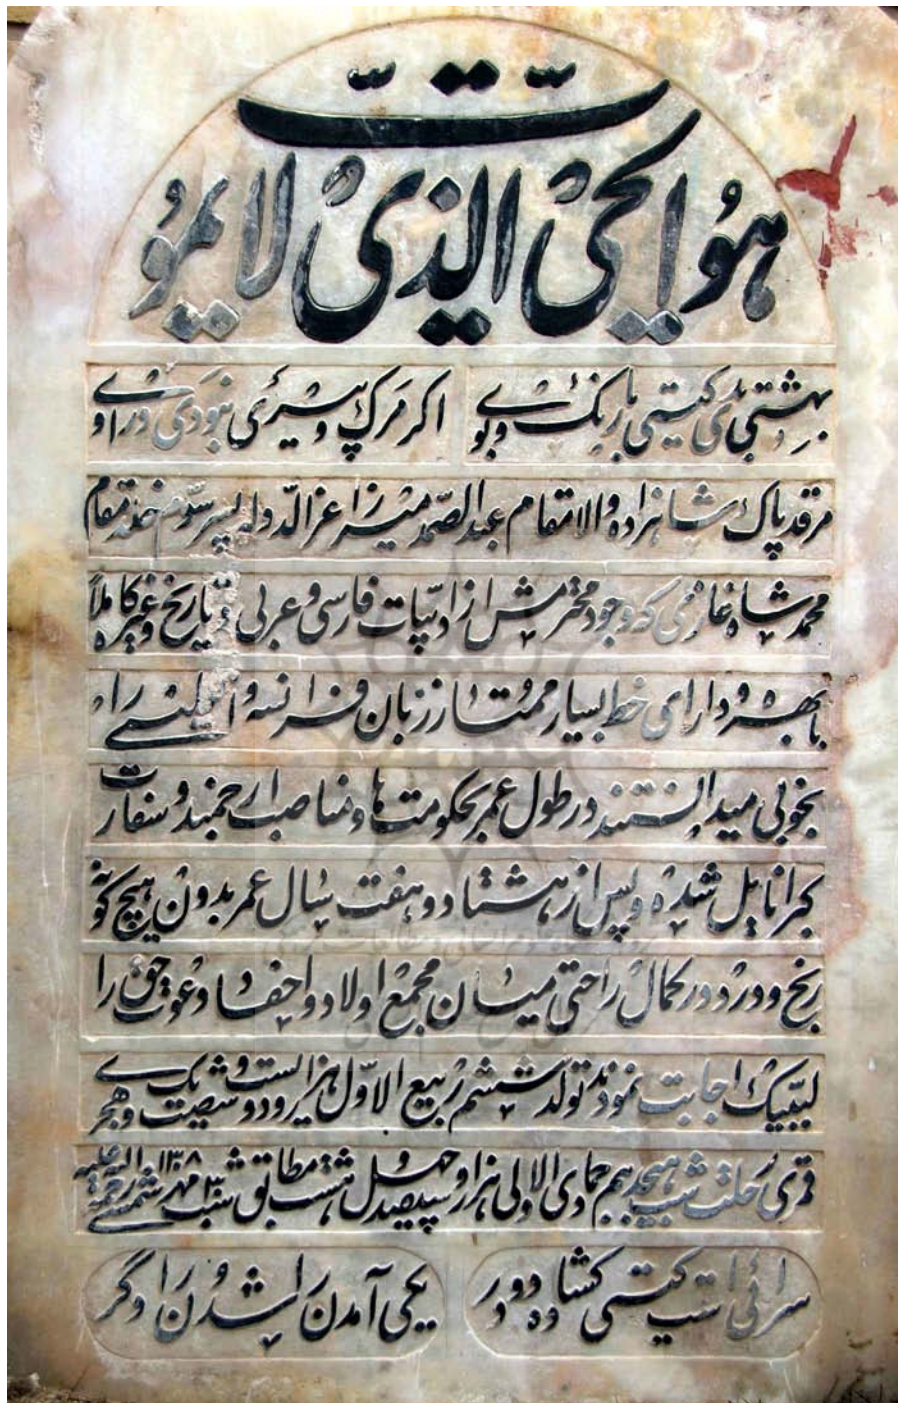 هو الحی الذی لا یموت
بهشتی بدی گیتی با رنگ و بوی اگر مرگ و پیری نبودی در اوی
مرقد پاک شاهزاده والامقام عبدالصمد میرزا عزالدوله پسر سوم خلد مقام
محمد شاه غازی که وجود محترمش از ادبیات فارسی و عربی و تاریخ و غیره کاملاً
با بهره و دارای خط بسیار ممتاز زبان فرانسه و انگلیسی را
بخوبی میدانستند در طول عمر بحکومت ها و مناصب ارجمند و سفارت
کبرا نایل شده و پس از هشتاد و هفت سال عمر بدون هیچ گونه
رنج و درد در کمال راحتی میان مجمع اولاد و احفاد دعوت حق را
لبیک اجابت نمودند تولد ششم ربیع الاول هزار و دویست و شصت و یک هجری
قمری رحلت شب هیجدهم جمادی الاولی هزار و سیصد و چهل و هشت مطابق شب ۳۰ مهر ۱۳۰۸ شمسی رحمة الله علیه
سرائی است گیتی گشاده دو در یکی آمدن را شدن را دگر